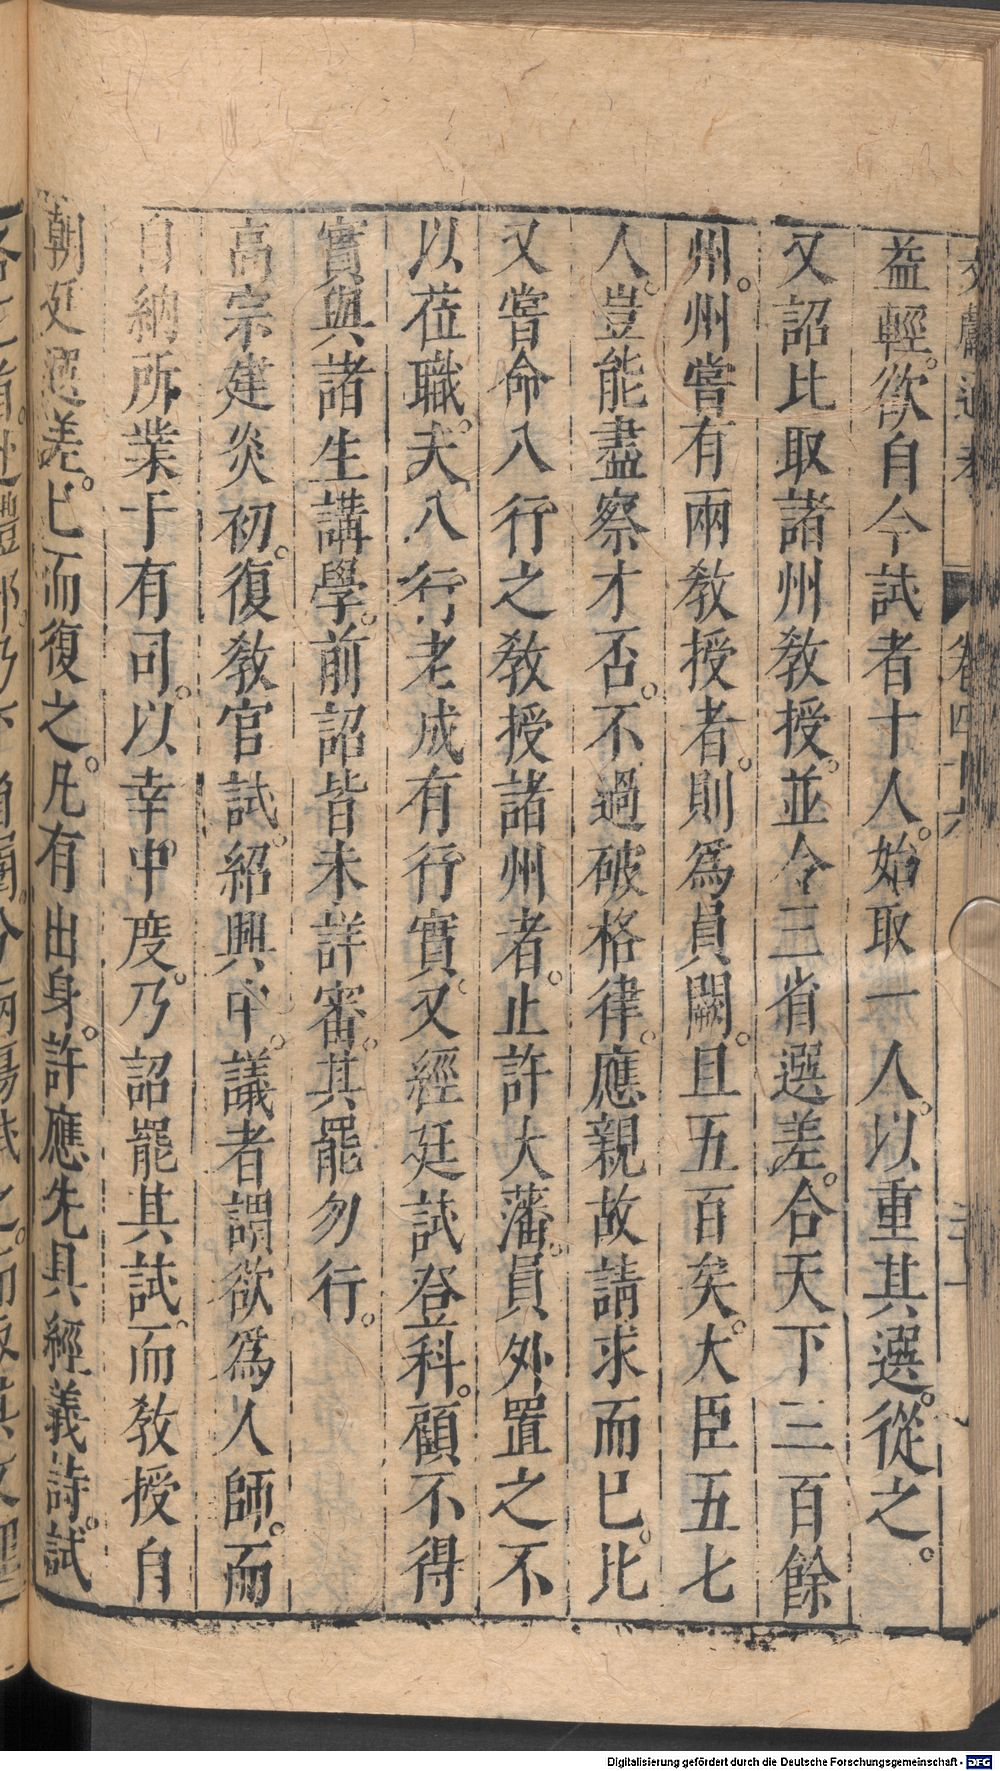 文獻通考 卷四十六
益輕。欲自今試者十人。始取一人。以重其選。從之。
又詔比取諸州教授。並令三省選差。合天下三百餘
州。州嘗有兩教授者。則爲員闕。且五百矣。大臣五七
人。豈能盡察才否。不過破格律。應親故請求而已。比
又嘗命八行之教授諸州者。止許大藩。員外置之不
以莅職。夫八行老成有行實。又經廷試登科。顧不得
實與諸生講學。前詔皆未詳審。其罷勿行。
高宗建炎初。復教官試。紹興中。議者謂欲爲人師。而
自納所業于有司。以幸中度。乃詔罷其試。而教授自
朝廷選差。已而復之。凡有出身。許應先具經義詩。試
Digitalisierung gefördert durch die Deutsche Forschungsgemeinschaft - DFG